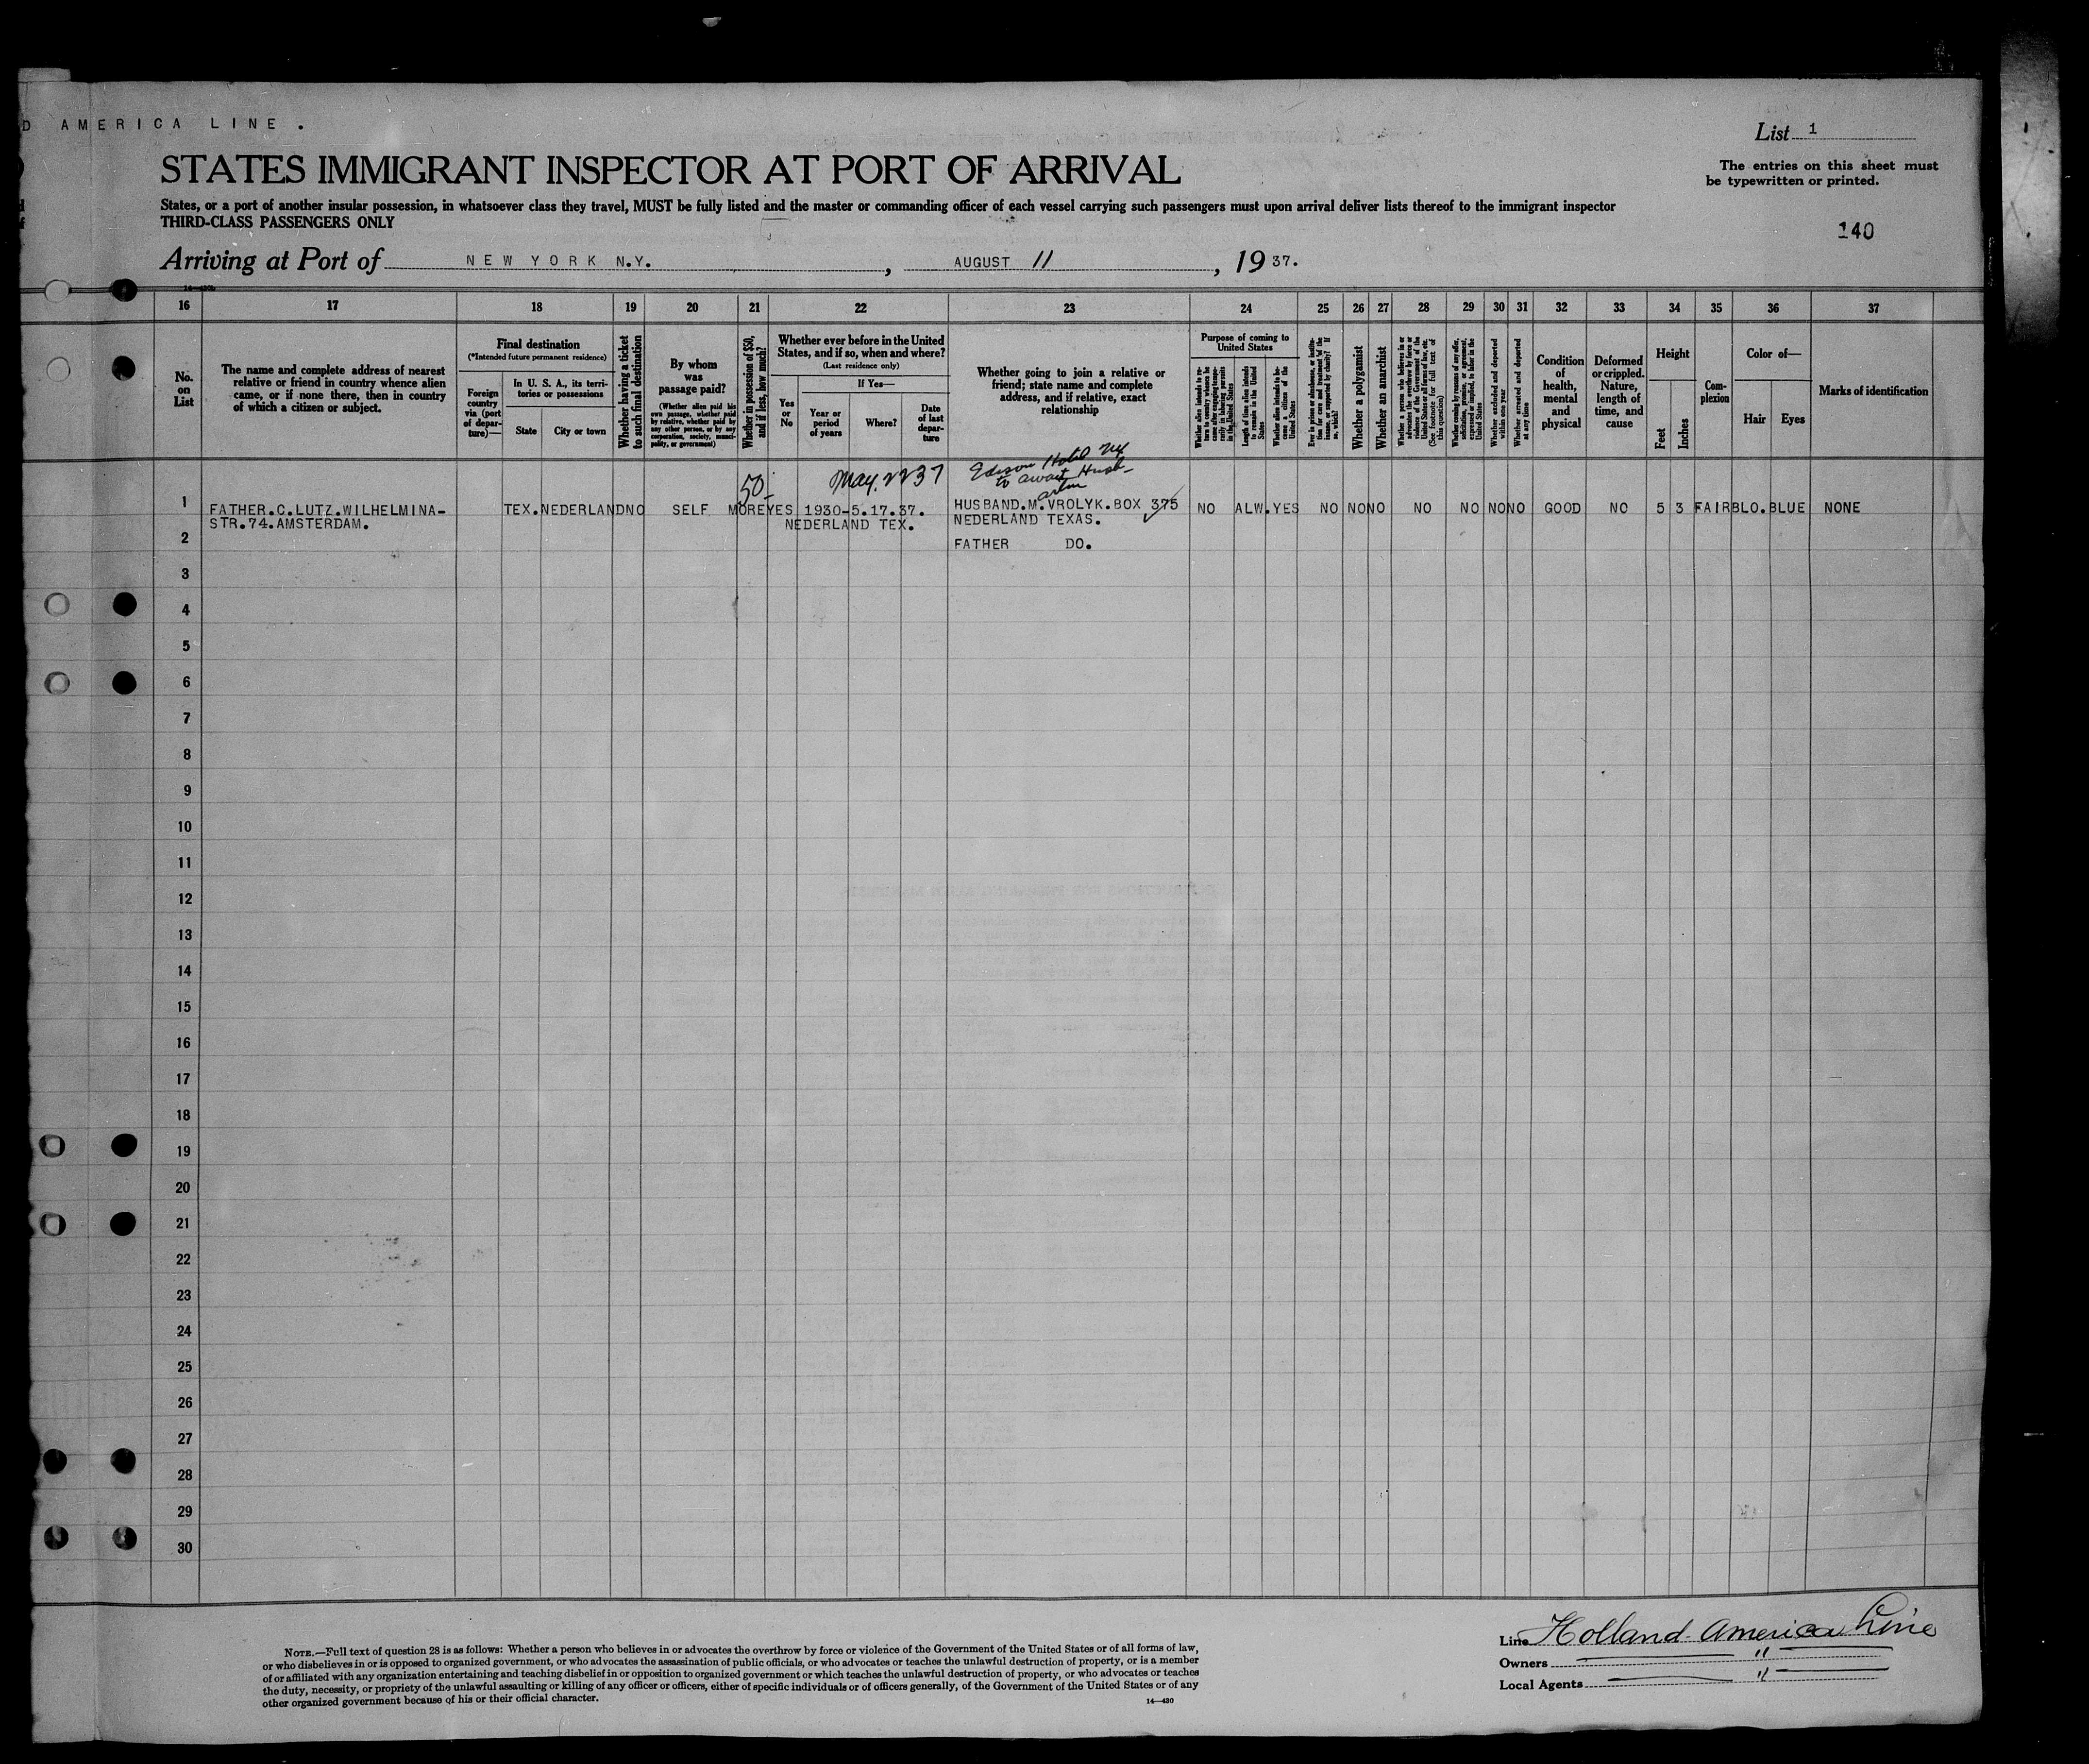 D AMERICA LINE .
List 1
STATES IMMIGRANT INSPECTOR AT PORT OF ARRIVAL
The entries on this sheet must
be typewritten or printed.
States, or a port of another insular possession, in whatsoever class they travel, MUST be fully listed and the master or commanding officer of each vessel carrying such passengers must upon arrival deliver lists thereof to the immigrant inspector
THIRD-CLASS PASSENGERS ONLY
140
Arriving at Port of NEW YORK N.Y. , AUGUST 11 , 19 37.
16 17 18 19 20 21 22 23 24 25 26 27 28 29 30 31 32 33 34 35 36 37
No.
on
List
The name and complete address of nearest
relative or friend in country whence alien
came, or if none there, then in country
of which a citizen or subject.
Final destination
(*Intended future permanent residence)
Foreign
country
via (port
of depar-
ture)—
In U. S. A., its terri-
tories or possessions
State
City or town
Whether having a ticket
to such final destination
By whom
was
passage paid?
(Whether alien paid his
own passage, whether paid
by relative, whether paid by
any other person, or by any
corporation, society, munici-
pality, or government)
Whether in possession of $50,
and if less, how much?
Whether ever before in the United
States, and if so, when and where?
(Last residence only)
Yes
or
No
If Yes—
Year or
period
of years
Where?
Date
of last
depar-
ture
Whether going to join a relative or
friend; state name and complete
address, and if relative, exact
relationship
Purpose of coming to
United States
Length of time alien intends
to remain in the United
States
Whether alien intends to be-
come a citizen of the
United States
Whether a polygamist
Whether an anarchist
(See footnote for full text of
this question)
Whether excluded and deported
within one year
Whether arrested and deported
at any time
Condition
of
health,
mental
and
physical
Deformed
or crippled.
Nature,
length of
time, and
cause
Height
Feet
Inches
Com-
plexion
Color of—
Hair
Eyes
Marks of identification
50-
May. 22 37
Edison Hotel NY
to await Husb-
1 FATHER.C.LUTZ.WILHELMINA- TEX. NEDERLAND NO SELF MORE YES 1930-5.17.37. HUSBAND.M.VROLYK.BOX 375 NO ALW. YES NO NO NO NO NO NO NO GOOD NO 5 3 FAIR BLO. BLUE NONE
STR.74.AMSTERDAM. NEDERLAND TEX. NEDERLAND TEXAS.
2 FATHER DO.
3
4
5
6
7
8
9
10
11
12
13
14
15
16
17
18
19
20
21
22
23
24
25
26
27
28
29
30
NOTE.—Full text of question 28 is as follows: Whether a person who believes in or advocates the overthrow by force or violence of the Government of the United States or of all forms of law,
or who disbelieves in or is opposed to organized government, or who advocates the assassination of public officials, or who advocates or teaches the unlawful destruction of property, or is a member
of or affiliated with any organization entertaining and teaching disbelief in or opposition to organized government or which teaches the unlawful destruction of property, or who advocates or teaches
the duty, necessity, or propriety of the unlawful assaulting or killing of any officer or officers, either of specific individuals or of officers generally, of the Government of the United States or of any
other organized government because of his or their official character.
14—430
Line Holland-America Line
Owners "
Local Agents "